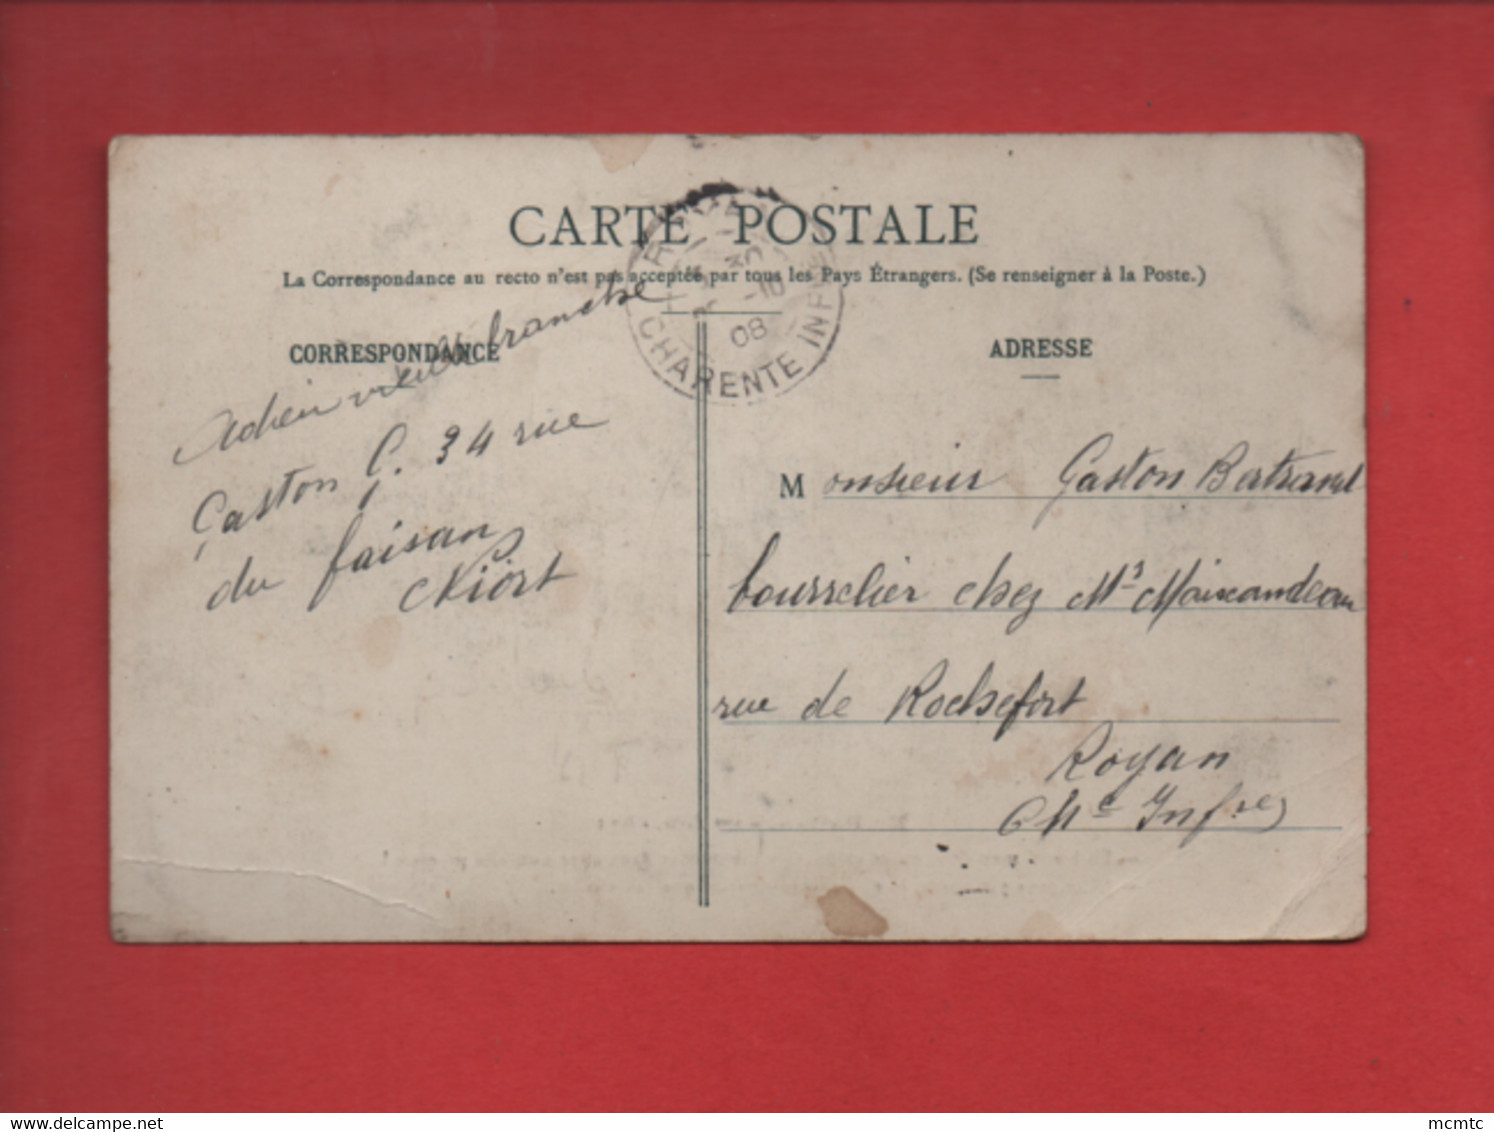 CARTE POSTALE
La Correspondance au recto n'est pas acceptée par tous les Pays Étrangers. (Se renseigner à la Poste.)
CORRESPONDANCE
ADRESSE
30
-10
08
CHARENTE INFRE
Adieu vieille branche
Gaston C. 34 rue
du faisan
Niort
Monsieur Gaston Bertrand
bourrelier chez Mr Maixandeau
rue de Rochefort
Royan
Chte Infres
www.delcampe.net
mcmtc